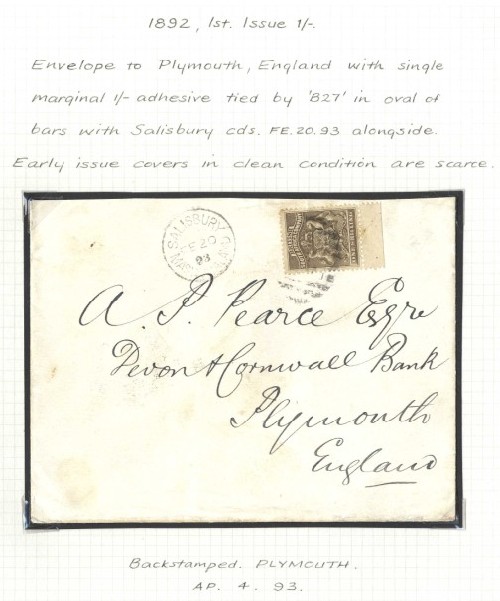 1892, 1st. Issue 1/-.
Envelope to Plymouth, England with single
marginal 1/- adhesive tied by '827' in oval of
bars with Salisbury cds. FE.20.93 alongside.
Early issue covers in clean condition are scarce.
SALISBURY
FE 20
93
A. P. Pearce Esqre
Devon & Cornwall Bank
Plymouth
England
Backstamped. PLYMOUTH.
AP. 4. 93.